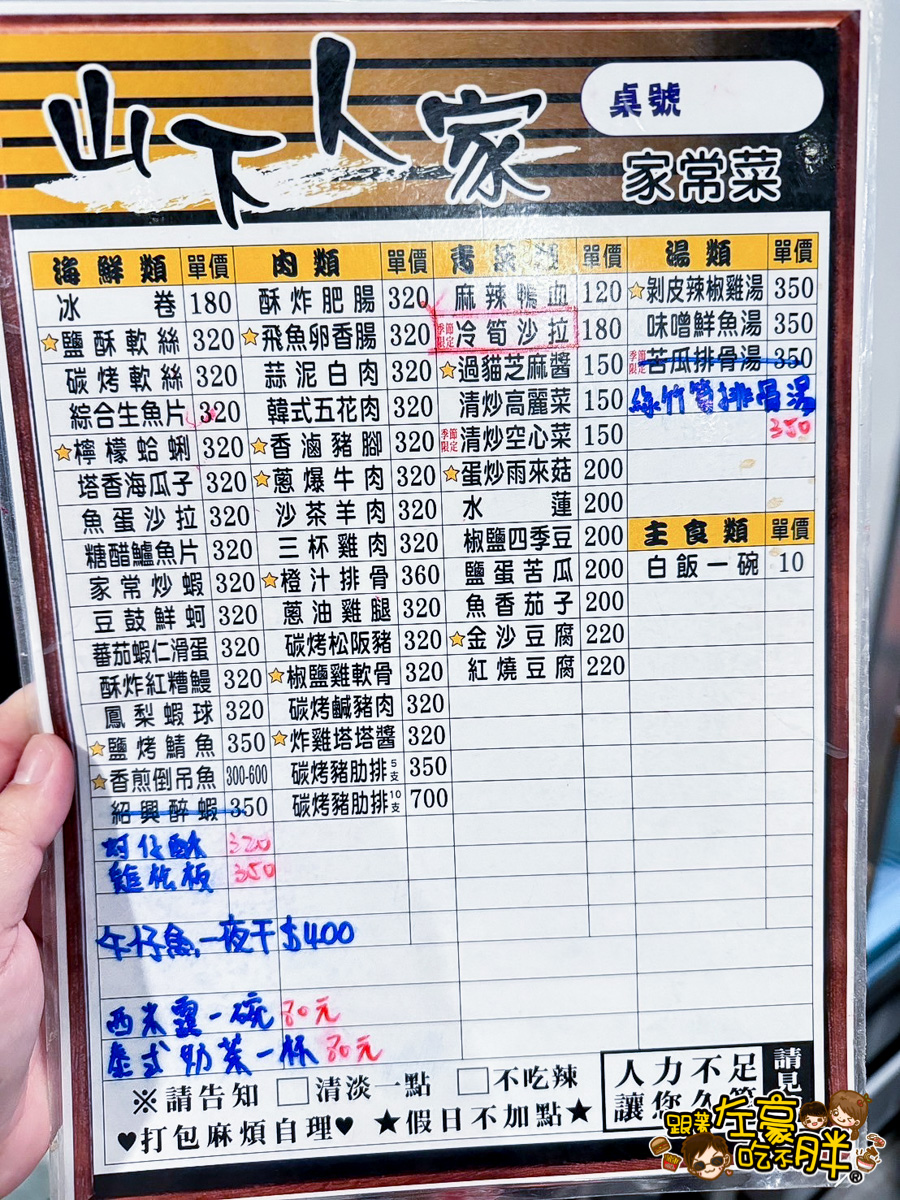 山下人家
桌號
家常菜
海鮮類 單價
冰卷 180
☆鹽酥軟絲 320
碳烤軟絲 320
綜合生魚片 320
☆檸檬蛤蜊 320
塔香海瓜子 320
魚蛋沙拉 320
糖醋鱸魚片 320
家常炒蝦 320
豆鼓鮮蚵 320
蕃茄蝦仁滑蛋 320
酥炸紅糟鰻 320
鳳梨蝦球 320
☆鹽烤鯖魚 350
☆香煎倒吊魚 300-600
紹興醉蝦 350
蚵仔酥 320
320
350
午仔魚一夜干 $400
西米露一碗 80元
泰式奶茶一杯 80元
肉類 單價
酥炸肥腸 320
☆飛魚卵香腸 320
蒜泥白肉 320
韓式五花肉 320
☆香滷豬腳 320
☆蔥爆牛肉 320
沙茶羊肉 320
三杯雞肉 320
☆橙汁排骨 360
蔥油雞腿 320
碳烤松阪豬 320
☆椒鹽雞軟骨 320
碳烤鹹豬肉 320
☆炸雞塔塔醬 320
碳烤豬肋排5支 350
碳烤豬肋排10支 700
青菜類 單價
麻辣鴨血 120
季節限定 冷筍沙拉 180
☆過貓芝麻醬 150
清炒高麗菜 150
季節限定 清炒空心菜 150
☆蛋炒雨來菇 200
水蓮 200
椒鹽四季豆 200
鹽蛋苦瓜 200
魚香茄子 200
☆金沙豆腐 220
紅燒豆腐 220
湯類 單價
☆剝皮辣椒雞湯 350
味噌鮮魚湯 350
季節限定 苦瓜排骨湯 350
綠竹筍排骨湯
350
主食類 單價
白飯一碗 10
※請告知 □清淡一點 □不吃辣
♥打包麻煩自理♥ ★假日不加點★
人力不足
讓您久等
請見
跟著左豪吃不胖®